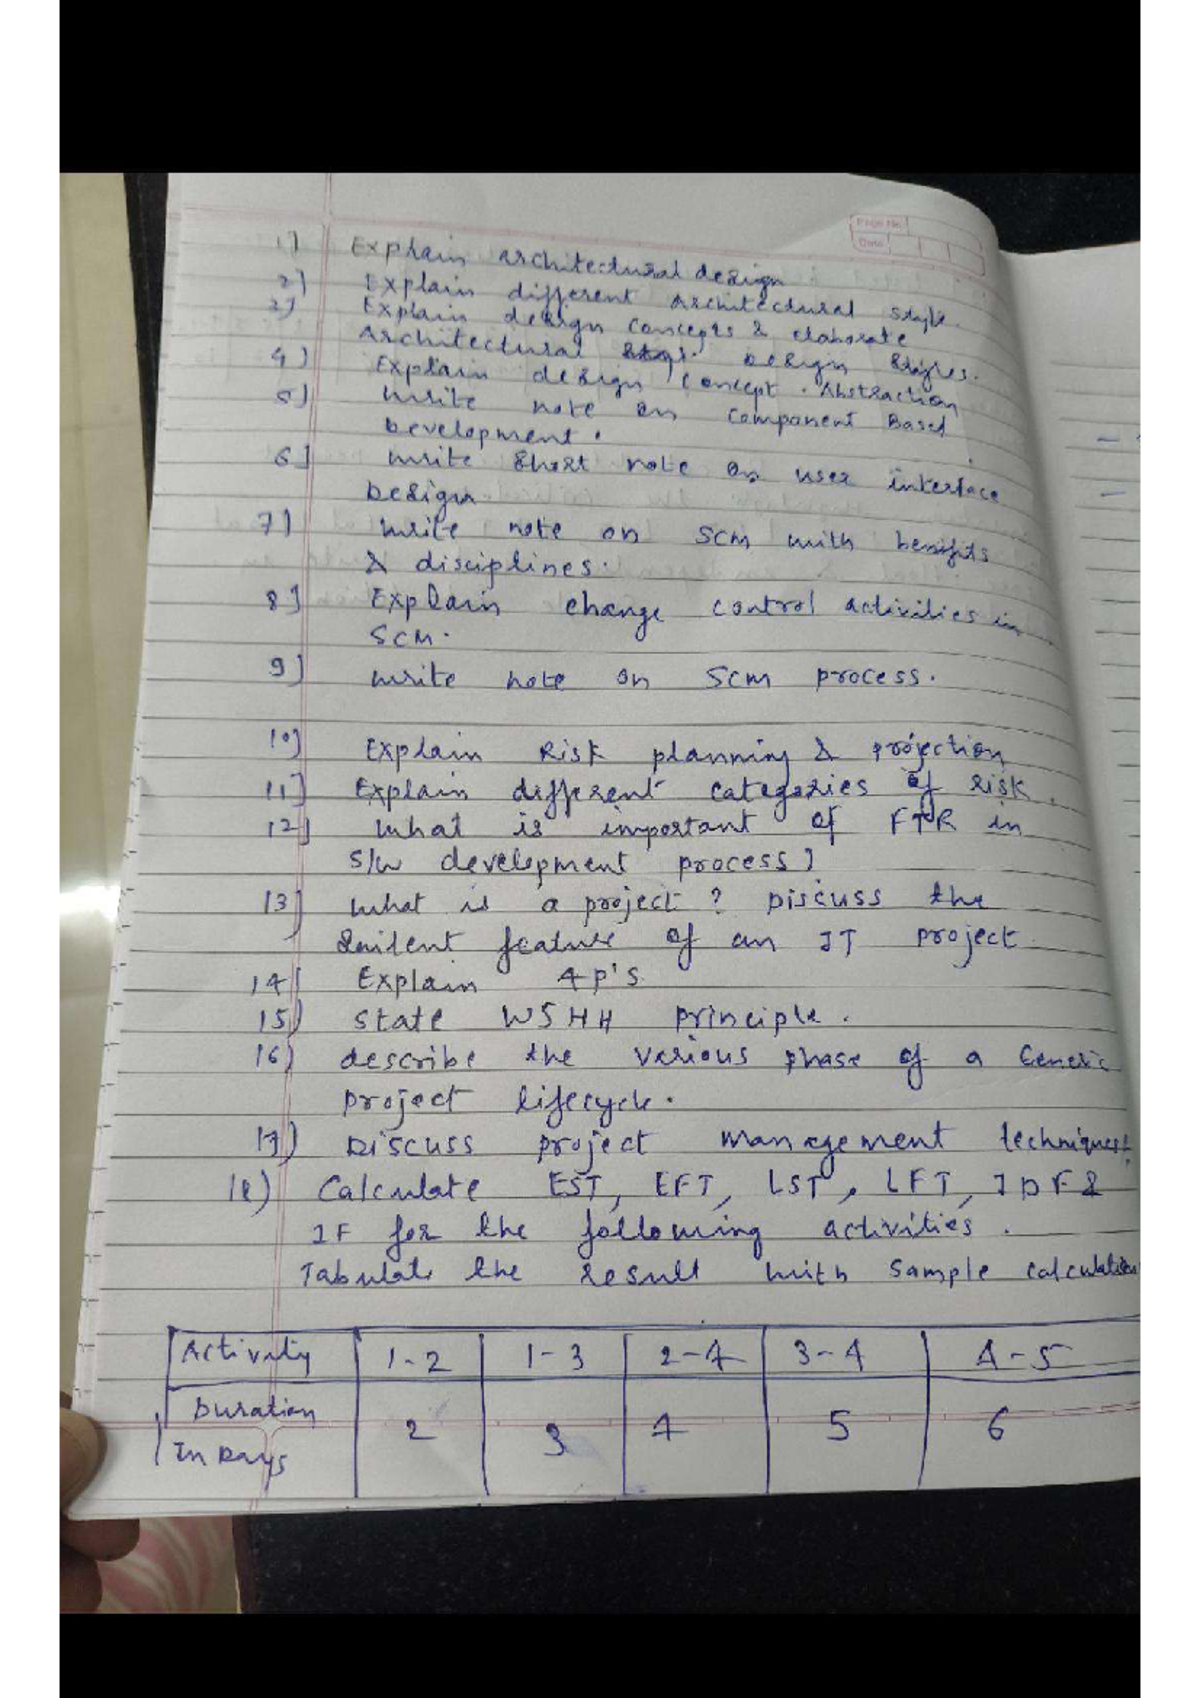 Page No.
Date
1) Explain architectural design
2) Explain different Architectural style.
3) Explain design concepts & elaborate
Architectural Design Styles.
4) Explain design concept. Abstraction
5) write note on component Based
Development.
6] write short note on user interface
Design
7) write note on SCM with benifits
& disciplines.
8] Explain change control activities in
SCM.
9] write note on SCM process.
10] Explain Risk planning & projection
11] Explain different categories of risk.
12] what is important of FTR in
S/W development process?
13] what is a project? Discuss the
feature of an IT project
14) Explain 4p's
15) state W5HH principle.
16) describe the various phase of a Generic
project lifecycle.
17) Discuss project management techniques.
18) Calculate EST, EFT, LST, LFT, IDF &
IF for the following activities.
Tabulate the result with sample calculation
Activity 1-2 1-3 2-4 3-4 4-5
Duration
In Days 2 3 4 5 6